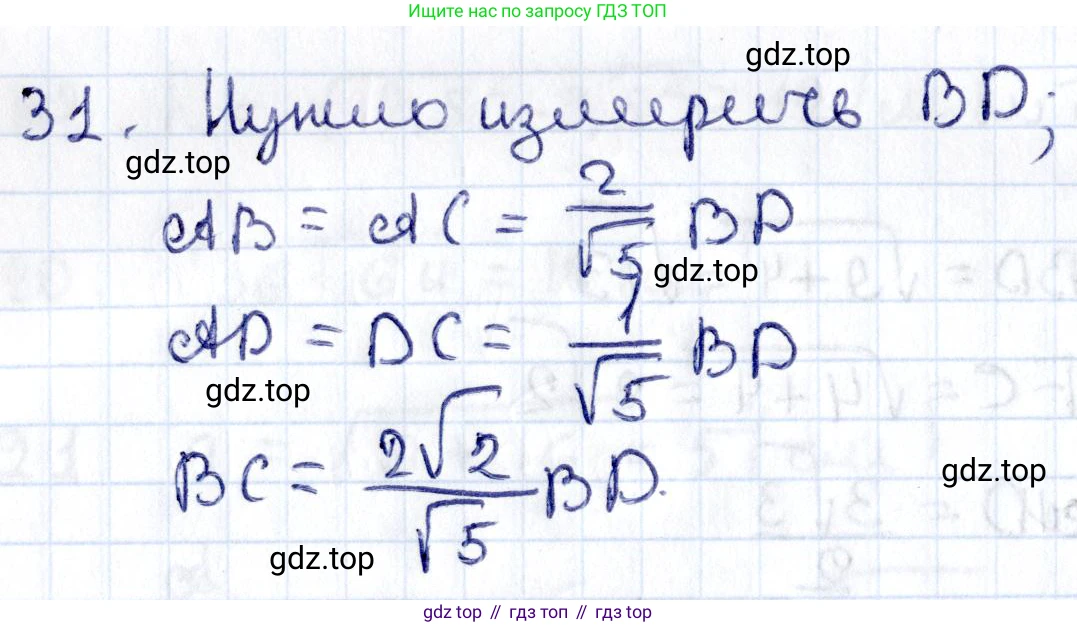 Ищите нас по запросу ГДЗ ТОП
gdz.top
31. Нужно измерить BD;
gdz.top
AB = AC = \frac{2}{\sqrt{5}} BD
gdz.top
AD = DC = \frac{1}{\sqrt{5}} BD
gdz.top
BC = \frac{2\sqrt{2}}{\sqrt{5}} BD.
gdz.top
gdz.top
gdz top // гдз топ // gdz top